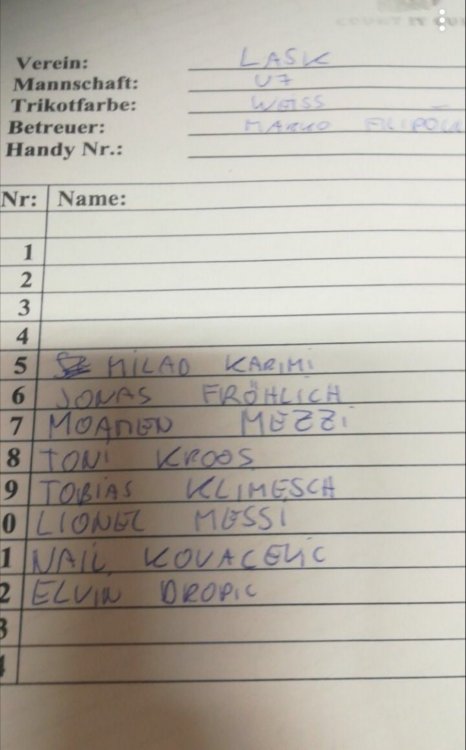 COUNT IT
Verein: LASK
Mannschaft: U7
Trikotfarbe: WEISS
Betreuer: MARKO
Handy Nr.:
Nr: Name:
1
2
3
4
5 MILAD KARIMI
6 JONAS FRÖHLICH
7 MOAMEN MEZZI
8 TONI KROOS
9 TOBIAS KLIMESCH
0 LIONEL MESSI
1 NAIL KOVACEVIC
2 ELVIN DROPIC
3
4